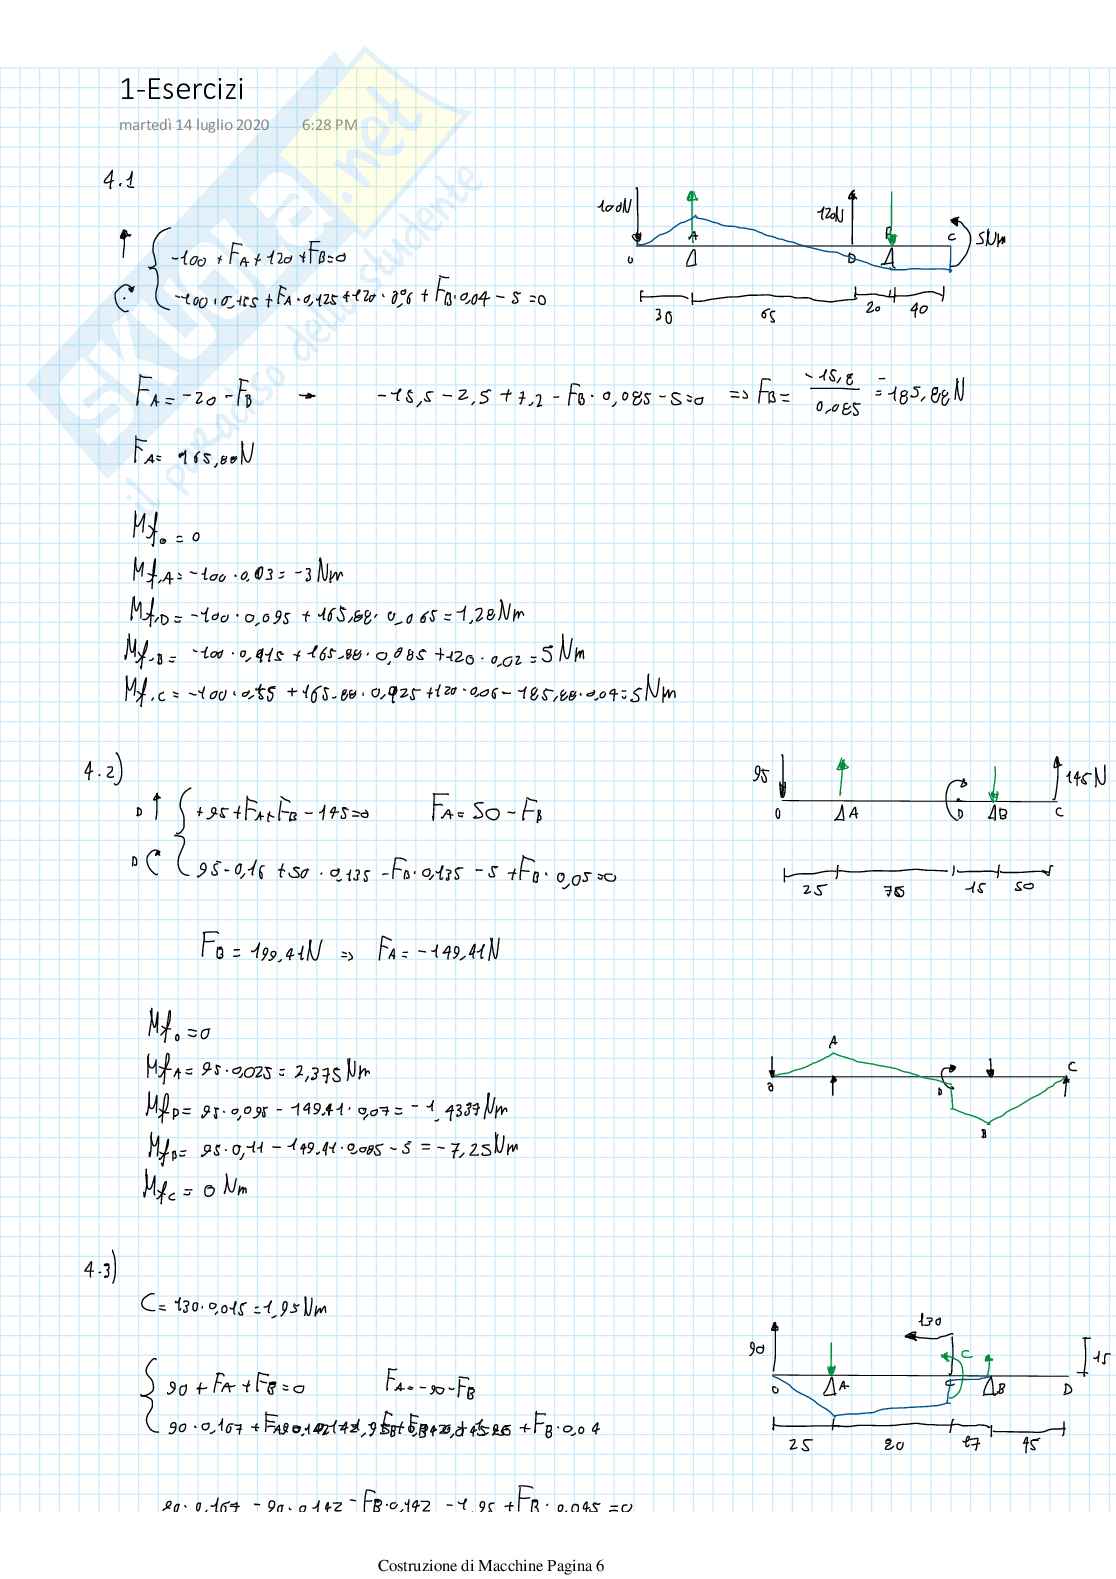 1-Esercizi
martedì 14 luglio 2020 6:28 PM
SKUOLA.net
il paradiso dello studente
4.1
-100 + FA + 120 + FB = 0
-100 · 0,155 + FA · 0,125 + 120 · 0,06 + FB · 0,04 - 5 = 0
100N
A
120N
B
C
5Nm
O
D
30
65
20
40
FA = -20 - FB → -15,5 - 2,5 + 7,2 - FB · 0,085 - 5 = 0 => FB = -15,8 / 0,085 = -185,88 N
FA = 165,88 N
Mf,o = 0
Mf,A = -100 · 0,03 = -3 Nm
Mf,D = -100 · 0,095 + 165,88 · 0,065 = 1,28 Nm
Mf,B = -100 · 0,115 + 165,88 · 0,085 + 120 · 0,02 = 5 Nm
Mf,C = -100 · 0,155 + 165,88 · 0,125 + 120 · 0,06 - 185,88 · 0,04 = 5 Nm
4.2)
D ↑ +95 + FA + FB - 145 = 0 FA = 50 - FB
D 95 · 0,16 + 50 · 0,135 - FB · 0,135 - 5 + FB · 0,05 = 0
95
145 N
O
A
D
B
C
25
70
15
50
FB = 199,41 N => FA = -149,41 N
Mf o = 0
Mf A = 95 · 0,025 = 2,375 Nm
Mf D = 95 · 0,095 - 149,41 · 0,07 = -1,4337 Nm
Mf B = 95 · 0,11 - 149,41 · 0,085 - 5 = -7,25 Nm
Mf C = 0 Nm
A
O
D
B
C
4.3)
C = 130 · 0,015 = 1,95 Nm
90 + FA + FB = 0 FA = -90 - FB
90 · 0,167 + FA
+ FB · 0,04
90 · 0,167 - 90 · 0,142 - FB · 0,142 - 1,95 + FB · 0,045 = 0
130
90
C
15
O
A
B
D
25
20
17
45
Costruzione di Macchine Pagina 6